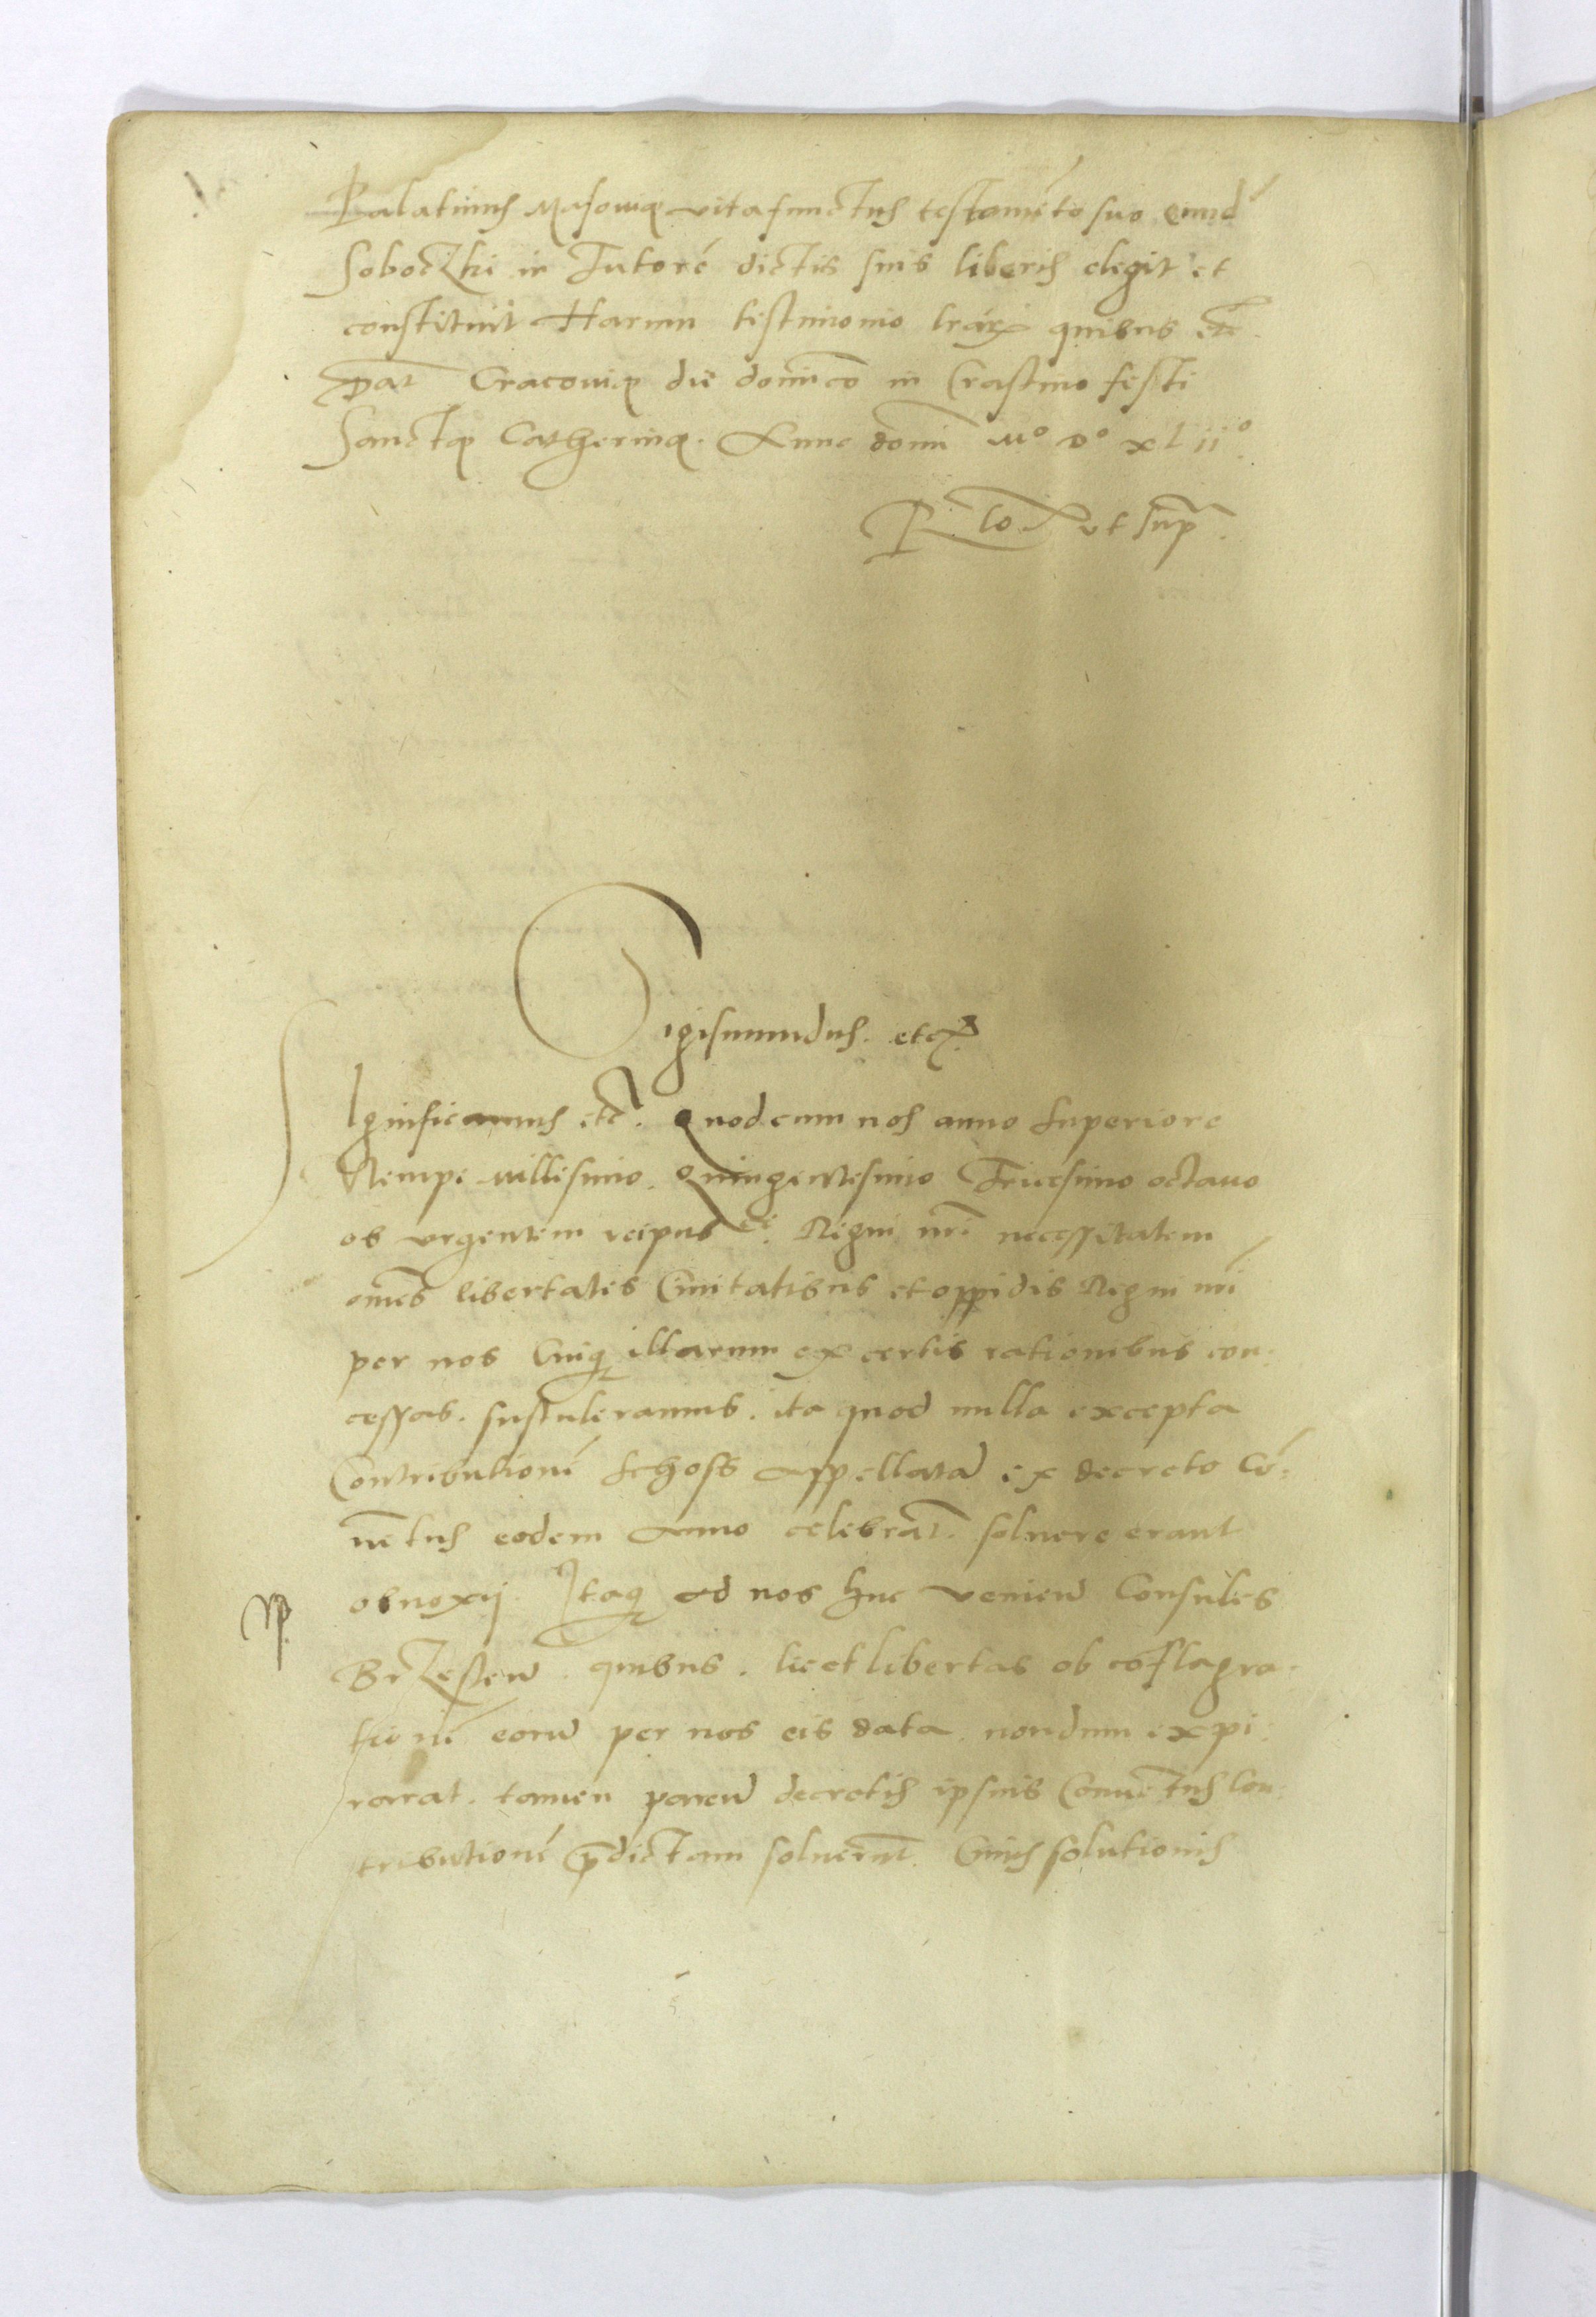 Palatinus Masouię vita functus testamēto suo eund̄
Soboczki in Tutorē dictis suis liberis elegit et
constituit Harum testimonio lrārꝝ quibus etc̄.
Dat̄ Cracouię die domīco in Crastino festi
Sanctę Catherinę. Anno domī M° D° xl ii°.
Rlō ut supᷓ.
Sigismundus. etcꝫ
Significamus etc̄. Quod cum nos anno superiore
Nempe millesimo. Quingentesimo Tricesimo octauo
ob vrgentem reipub ce. Regni nr̄i necessitatem
omēs libertates Ciuitatibus et oppidis Regni nr̄i
per nos Cuiqꝫ illarum ex certis rationibus con:
cessas. sustuleramus. ita quod nulla excepta
Contributionē schoss appellatā ex decreto Cō:
uētus eodem anno celebrat̄. soluere erant
obnoxij. Itaqꝫ ad nos huc venien̄ Consules
Brzesten̄. quibus. licet libertas ob cōflagra:
tionē eorū per nos eis data. nondum expi:
rarat. tamen paren̄ decretis ipsius Conuētus Con:
tributionē p̄dictam soluerūt. Cuius solutionis